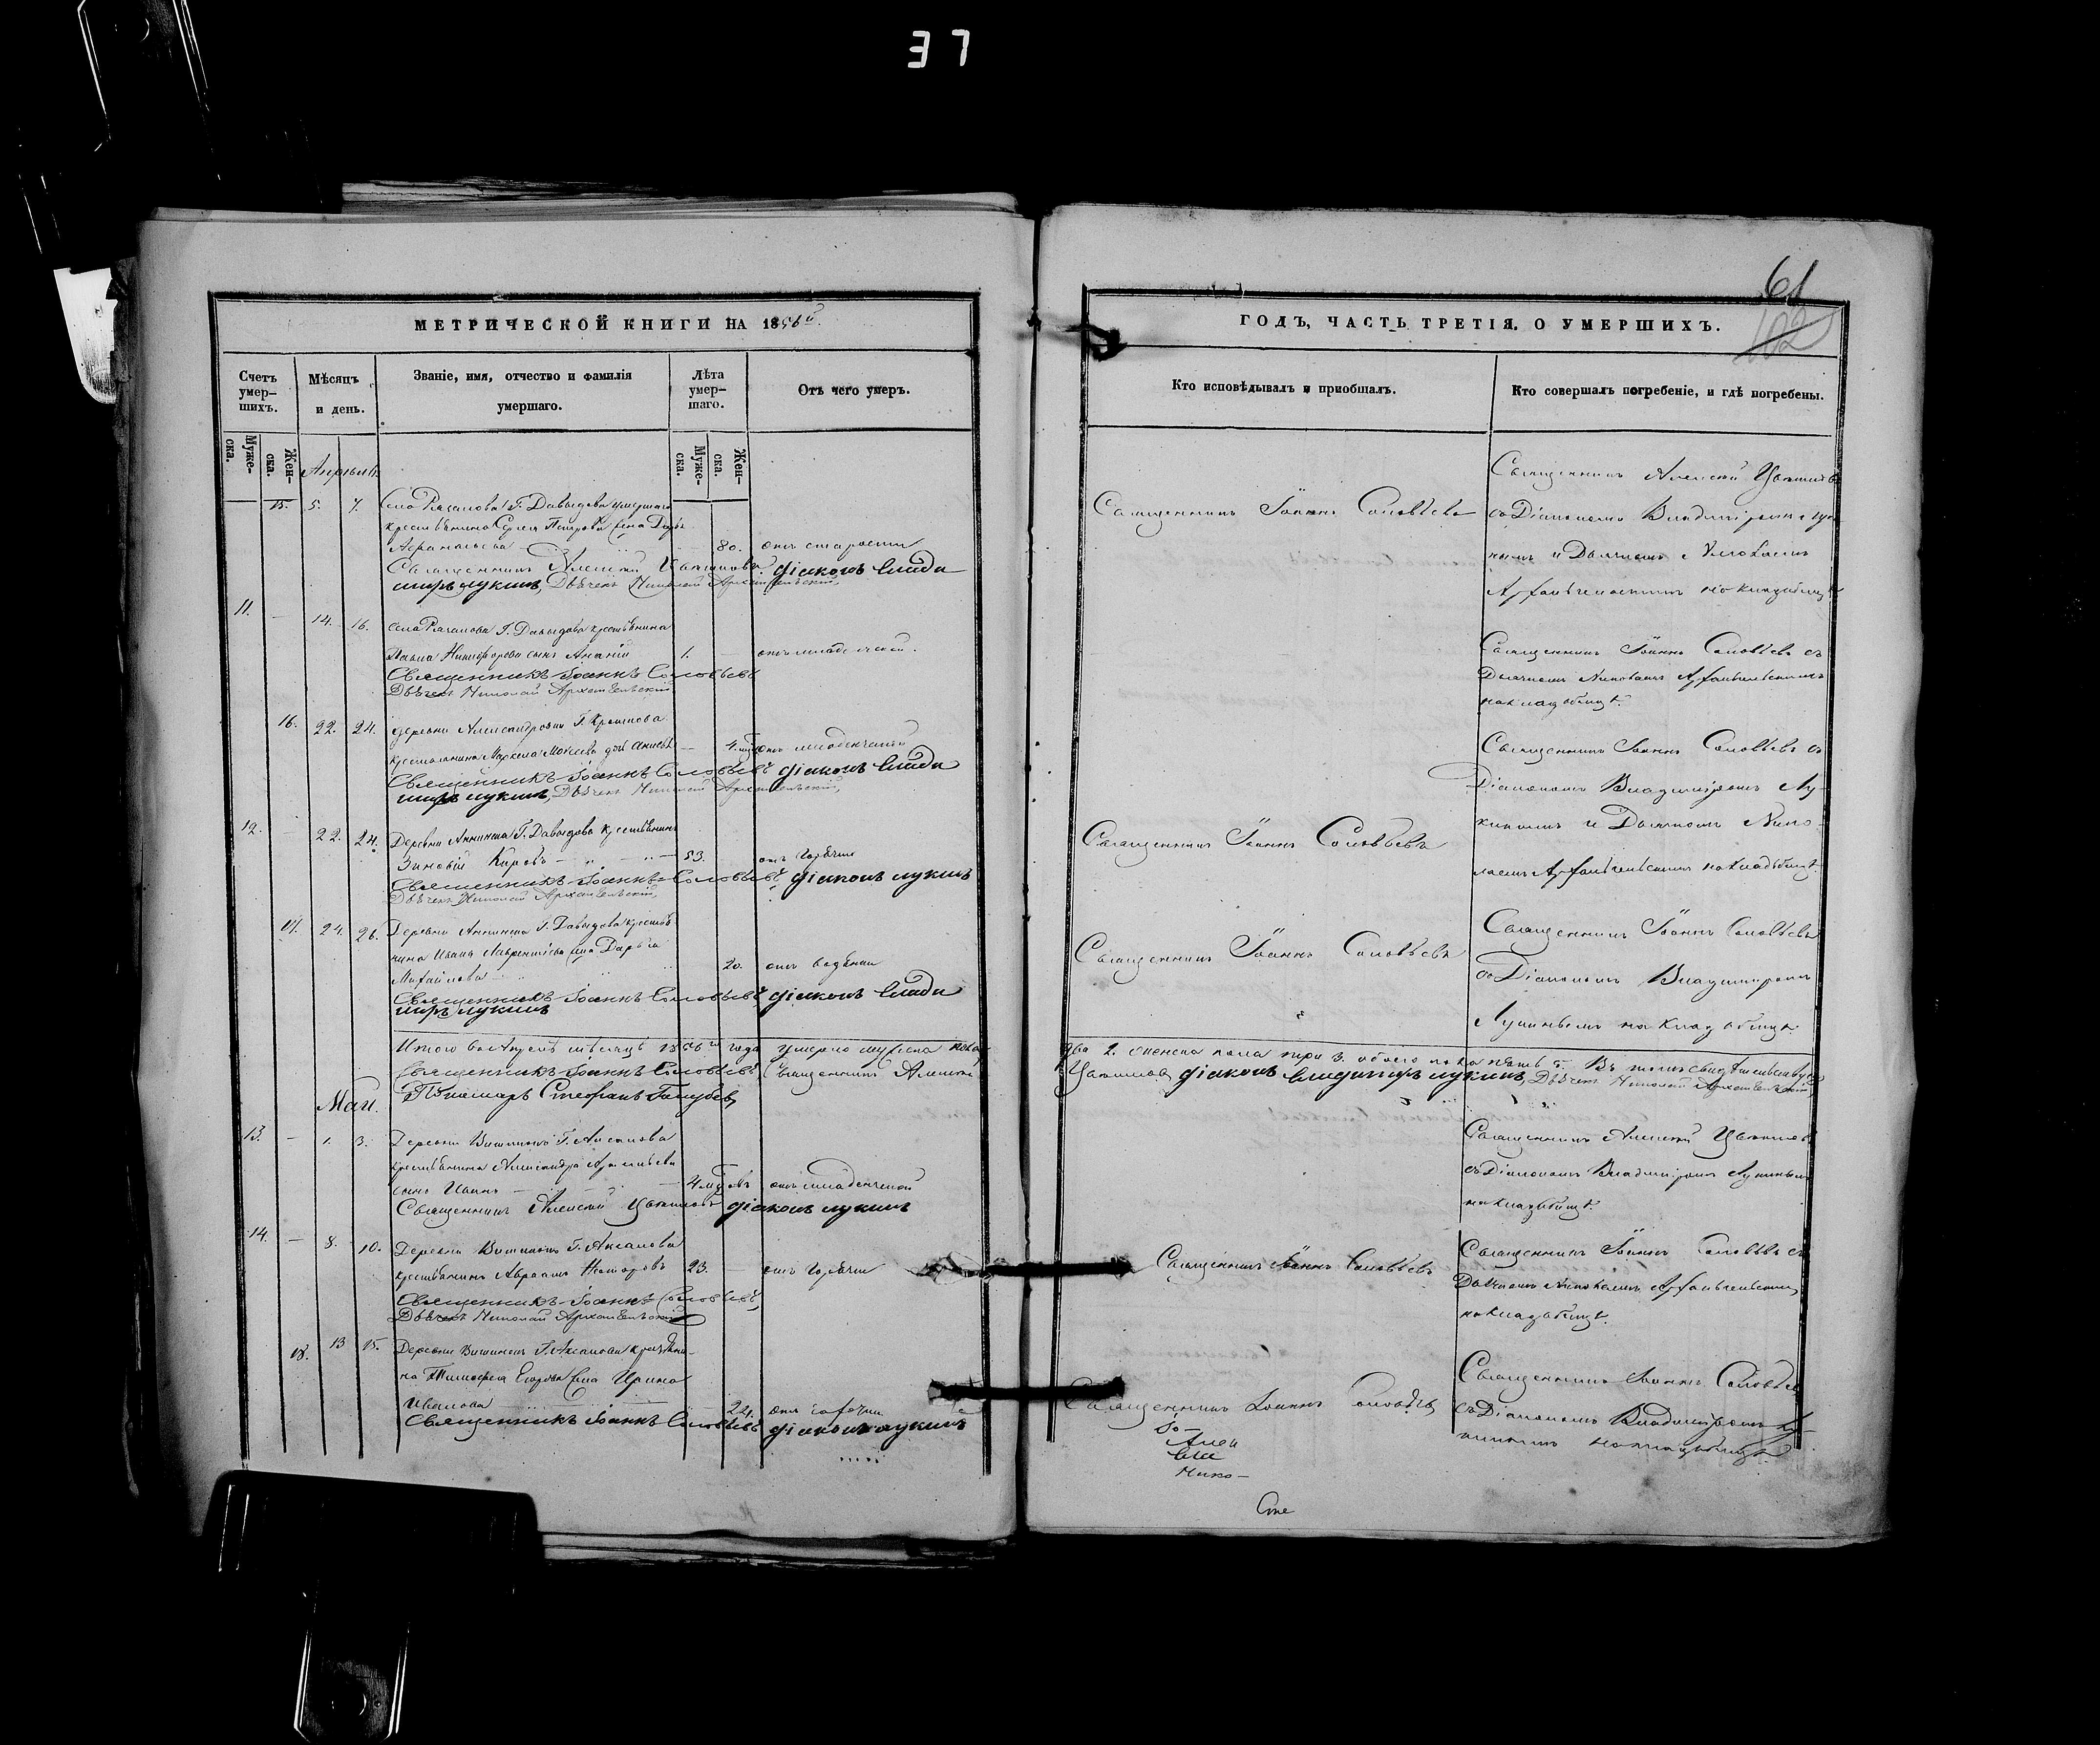 37
МЕТРИЧЕСКОЙ КНИГИ НА 1856й.
Счетъ умер-шихъ.
Мѣсяцъ и день.
Званіе, имя, отчество и фамилія умершаго.
Лѣта умер-шаго.
Отъ чего умеръ.
Муже-ска.
Жен-ска.
Муже-ска.
Жен-ска.
Апрѣль
15. 5. 7. Села Г. Давыдова умершаго
крестьянина Сергея Петрова жена
80. отъ старости
Священникъ Алексѣй діаконъ Влади
миръ Лукинъ, Дьячекъ Николай Архангельскій,
11. — 14. 16. Села Г. Давыдова крестьянина
Павла Никифорова сынъ Ананій 1. — отъ младенческой.
Священникъ Іоаннъ Соловьевъ
Дьячекъ Николай Архангельскій
16. 22. 24. деревни Александровки Г.
крестьянина Моисеева дочь — 4. отъ младенческой
Священникъ Іоаннъ Соловьевъ діаконъ Влади
миръ Лукинъ, Дьячекъ Николай Архангельскій,
12. — 22. 24. Деревни Аннина Г. Давыдова крестьянинъ
Зиновій Карповъ 53. отъ горячки
Священникъ Іоаннъ Соловьевъ діаконъ Лукинъ
Дьячекъ Николай Архангельскій,
17. 24. 26. Деревни Аннина Г. Давыдова крестья-
нина Ивана Лаврентьева жена Дарья
Михайлова 20. отъ
Священникъ Іоаннъ Соловьевъ, діаконъ Влади
миръ Лукинъ
Итого въ Апрѣлѣ мѣсяцѣ 1856го года умерло мужеска пола
Священникъ Іоаннъ Соловьевъ, Священникъ Алексѣй
Май. Пономарь Стефанъ Голубевъ,
13. — 1. 3. Деревни Г. Аксакова
крестьянина Александра
сынъ Иванъ 4 отъ младенческой
Священникъ Алексѣй діаконъ Лукинъ
14. — 8. 10. Деревни Г. Аксакова
крестьянинъ Авраамъ Несторовъ 23. — отъ горячки
Священникъ Іоаннъ Соловьевъ,
Дьячекъ Николай Архангельскій
18. 13 15. Деревни Г. Аксакова крестьяни-
на Тимофея Егорова жена Ирина
Иванова 22. отъ горячки
Священникъ Іоаннъ Соловьевъ діаконъ Лукинъ
61
102
ГОДЪ, ЧАСТЬ ТРЕТІЯ, О УМЕРШИХЪ.
Кто исповѣдывалъ и пріобщалъ.
Кто совершалъ погребеніе, и гдѣ погребены.
Священникъ Іоаннъ Соловьевъ
Священникъ Алексѣй
со Діакономъ Владиміромъ Лу-
кинымъ и Дьячкомъ Николаемъ
Архангельскимъ на кладбищѣ
Священникъ Іоаннъ Соловьевъ съ
Дьячкомъ Николаемъ Архангельскимъ
на кладбищѣ.
Священникъ Іоаннъ Соловьевъ съ
Діакономъ Владиміромъ Лу-
кинымъ и Дьячкомъ Нико-
лаемъ Архангельскимъ на кладбищѣ
Священникъ Іоаннъ Соловьевъ
Священникъ Іоаннъ Соловьевъ
Священникъ Іоаннъ Соловьевъ
со Діакономъ Владиміромъ
Лукинымъ на кладбищѣ.
два 2. женска пола три 3. обоего пола пять 5. Въ томъ свидѣтельствуемъ
діаконъ Владимиръ Лукинъ, Дьячекъ Николай Архангельскій,
Священникъ Алексѣй
со Діакономъ Владиміромъ Лукинымъ
на кладбищѣ.
Священникъ Іоаннъ Соловьевъ
Священникъ Іоаннъ Соловьевъ съ
Дьячкомъ Николаемъ Архангельскимъ
на кладбищѣ.
Священникъ Іоаннъ Соловьевъ
Священникъ Іоаннъ Соловьевъ
съ Діакономъ Владиміромъ Лу-
кинымъ на кладбищѣ
Іо-
Алек
Вла
Нико-
Сте